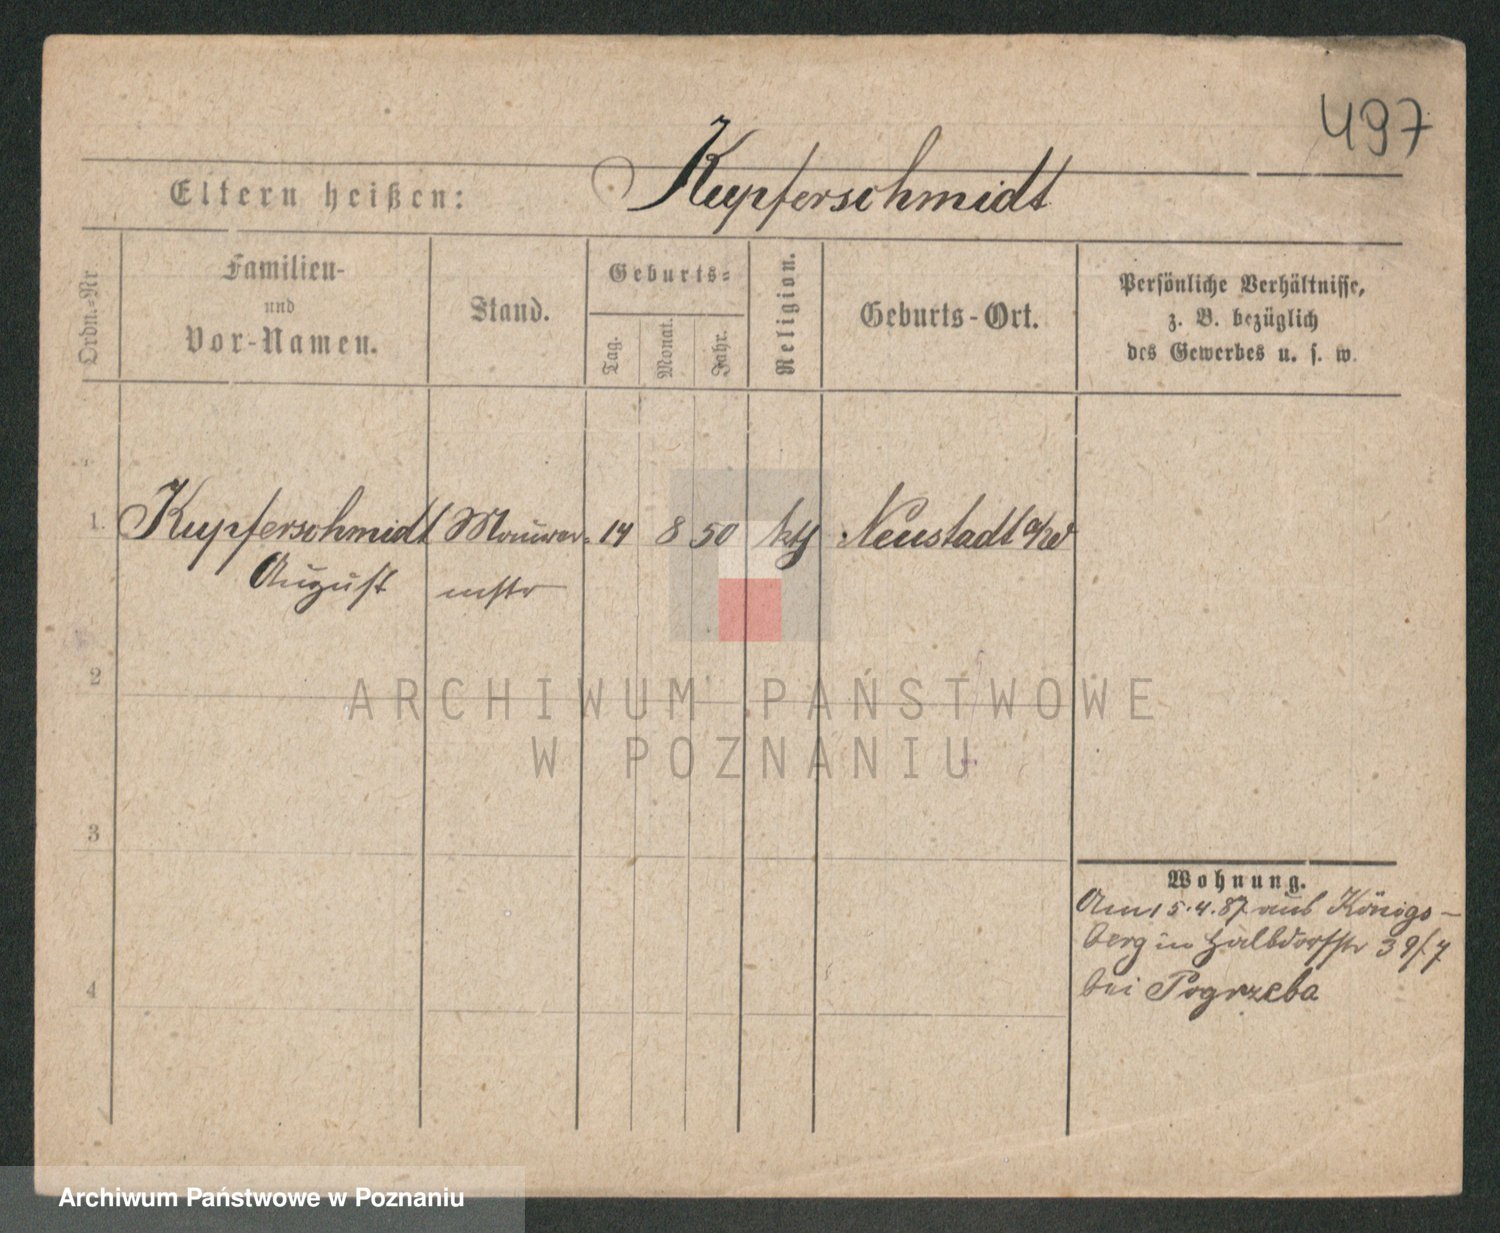 497
Kupferschmidt
Eltern heißen:
Ordn.-Nr
Familien-
und
Vor-Namen.
Stand.
Geburts-
Tag.
Monat.
Jahr.
Religion.
Geburts-Ort.
Persönliche Verhältnisse,
z. B. bezüglich
des Gewerbes u. s. w.
1. Kupferschmidt Maurer- 14 8 50 kth Neustadt a/W
August mstr
2
3
4
Wohnung.
Am 15.4.87 aus Königs-
berg in Halbdorfstr 39/7
bei Pogrzeba
ARCHIWUM PAŃSTWOWE
W POZNANIU
Archiwum Państwowe w Poznaniu